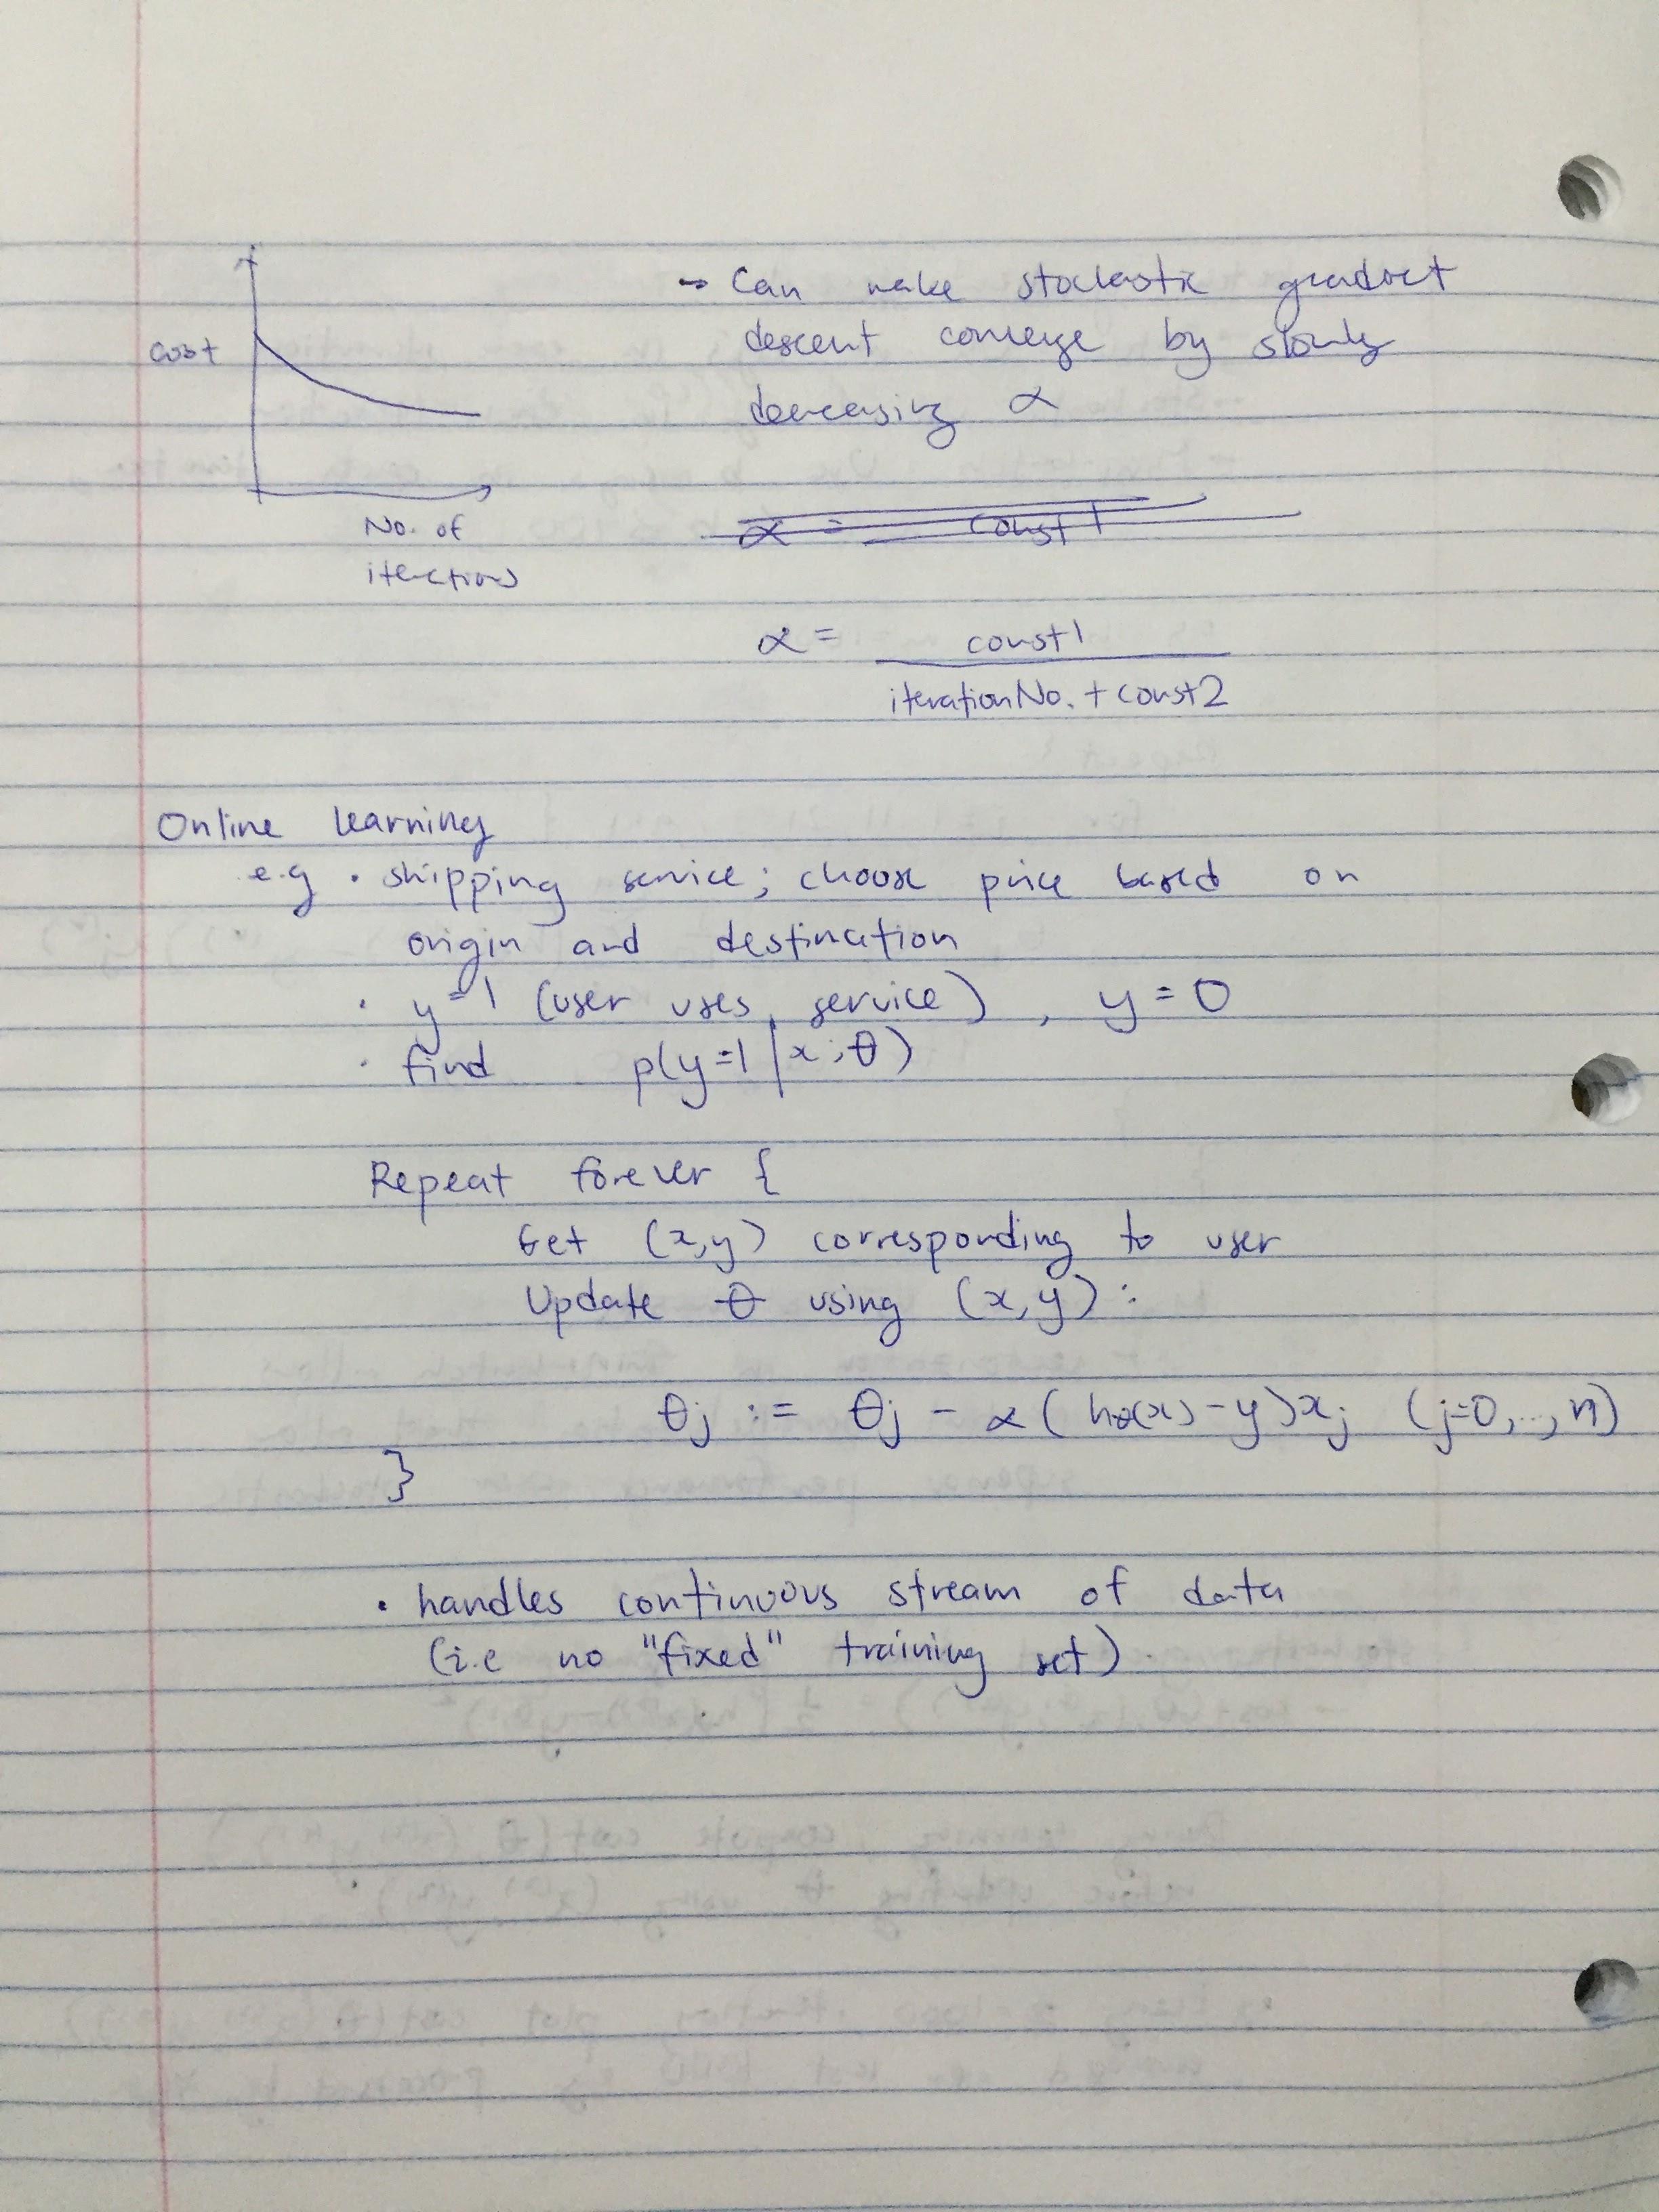 → Can make stochastic gradient
descent converge by slowly
decreasing α
cost
No. of
iterations
α = const 1
α = const1
iterationNo. + const2
Online learning
e.g • shipping service; choose price based on
origin and destination
• y=1 (user uses service), y=0
• find p(y=1|x;θ)
Repeat forever {
Get (x,y) corresponding to user
Update θ using (x,y):
θj := θj - α(hθ(x)-y)xj (j=0,...,n)
}
• handles continuous stream of data
(i.e no "fixed" training set)